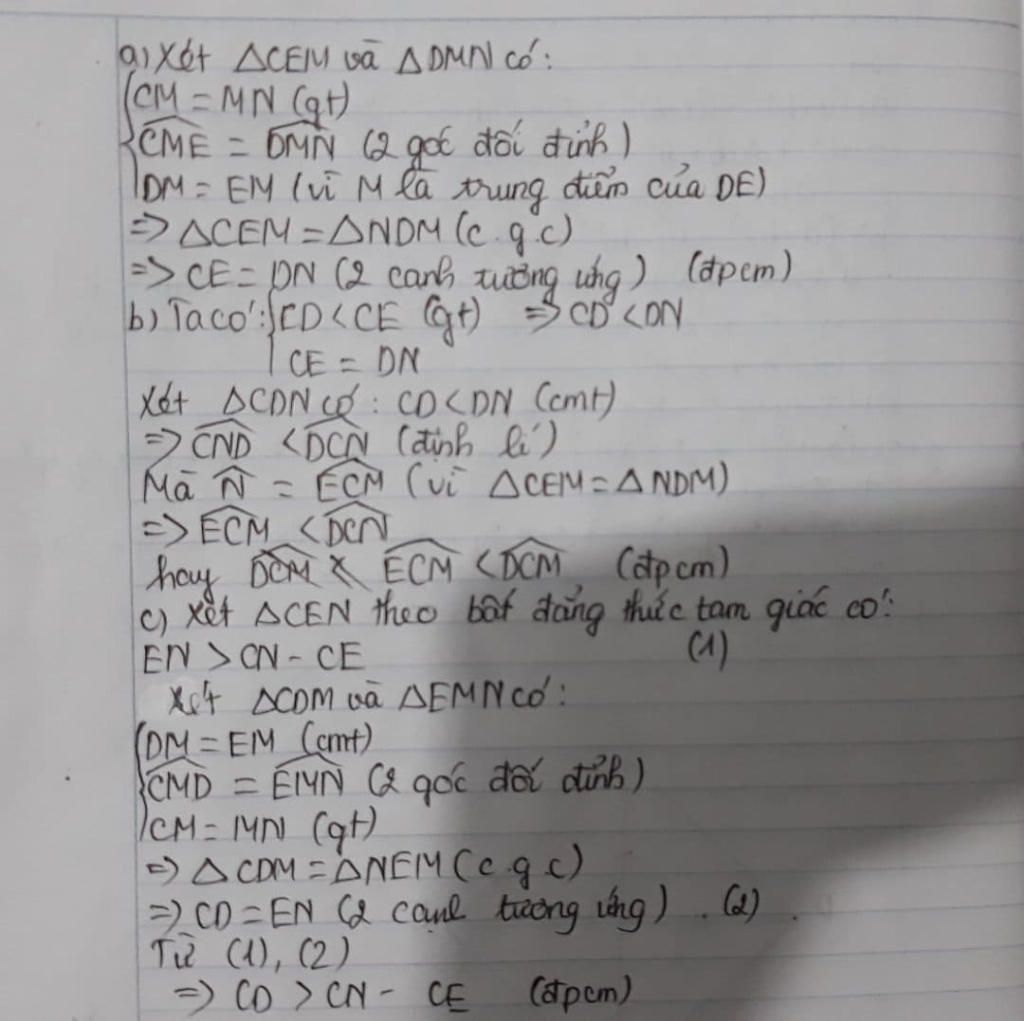 a) Xét △CEM và △DMN có:
CM = MN (gt)
CME = DMN (2 góc đối đỉnh)
DM = EM (vì M là trung điểm của DE)
=> △CEM = △NDM (c.g.c)
=> CE = DN (2 cạnh tương ứng) (đpcm)
b) Ta có: CD < CE (gt) => CD < DN
CE = DN
Xét △CDN có: CD < DN (cmt)
=> CND < DCN (định lí)
Mà N̂ = ECM (vì △CEM = △NDM)
=> ECM < DCN
hay ECM < DCM (đpcm)
c) Xét △CEN theo bất đẳng thức tam giác có:
EN > CN - CE (1)
Xét △CDM và △EMN có:
DM = EM (cmt)
CMD = EMN (2 góc đối đỉnh)
CM = MN (gt)
=> △CDM = △NEM (c.g.c)
=> CD = EN (2 cạnh tương ứng). (2).
Từ (1), (2)
=> CD > CN - CE (đpcm)